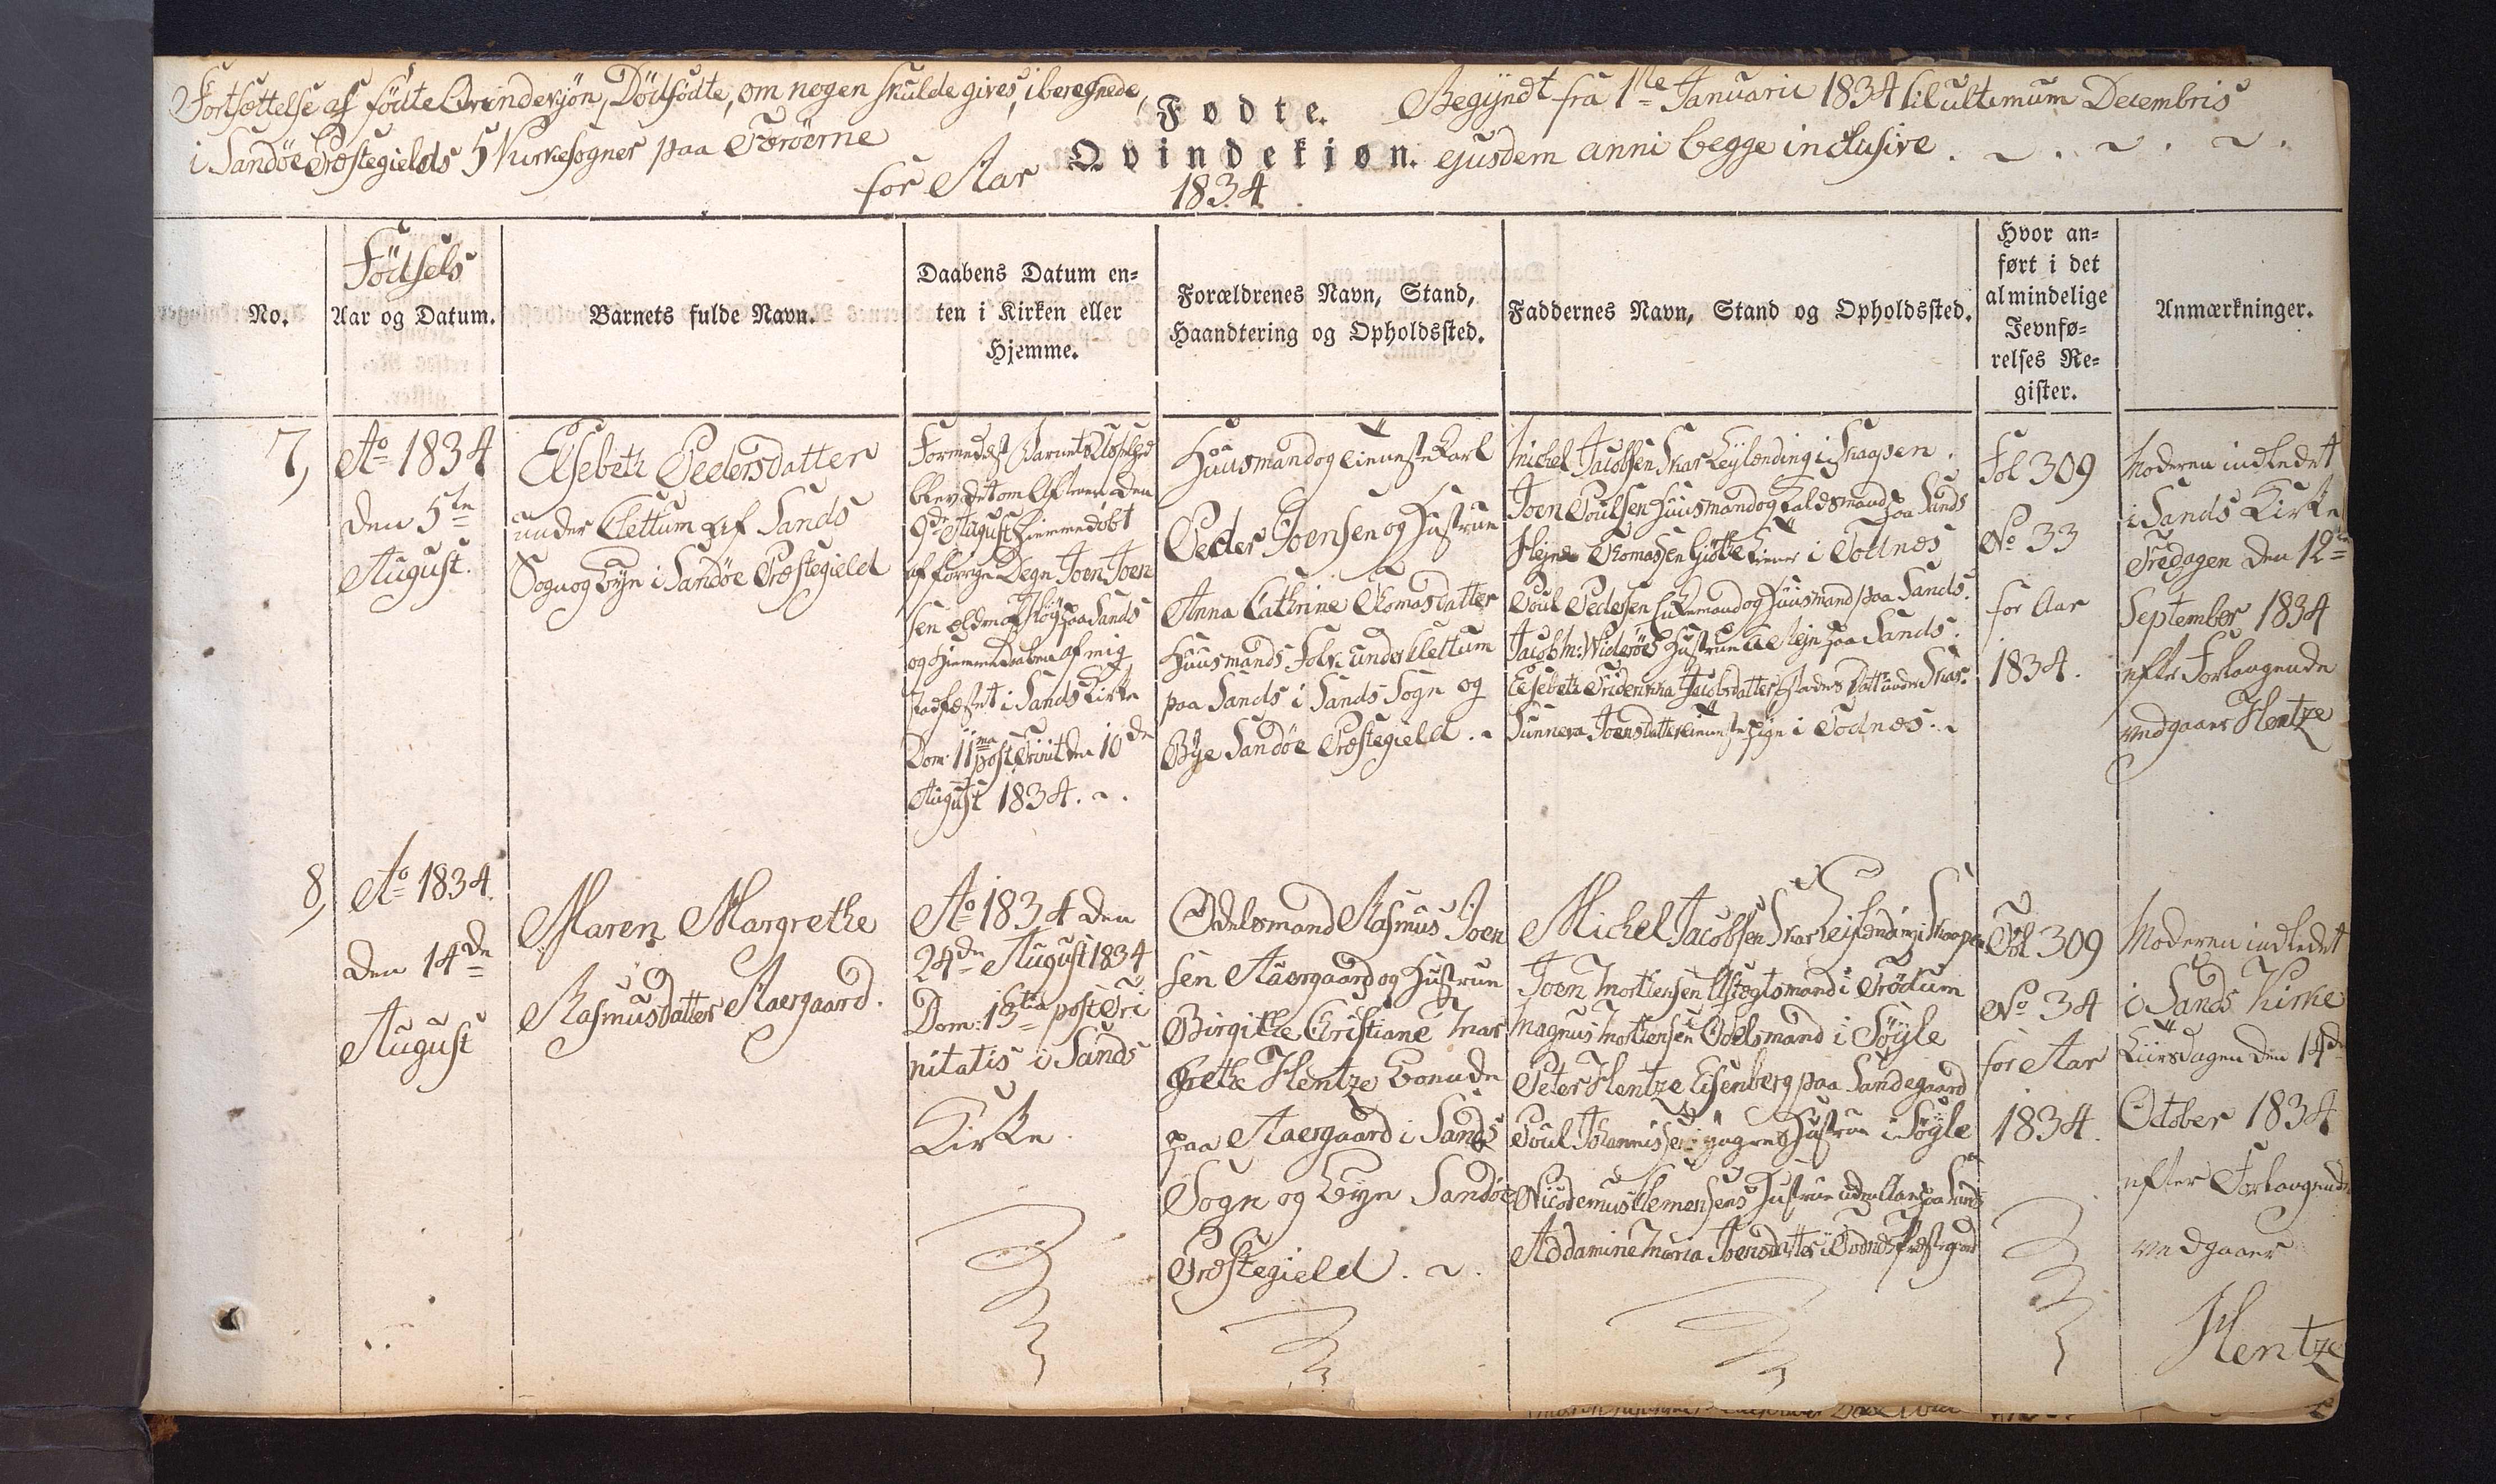 Fortsættelse af födte Qvindekjön, Dödfödte, om nogen skulde gives, iberegnede,
i Sandöe Præstegields 5 Kirkesogner paa Færöerne
for Aar
Fødte.
Qvindekjøn.
1834.
Begyndt fra 1ste Januarii 1834 til ultimum Decembris
ejusdem anni begge inclusive.
No.
Födsels
Aar og Datum.
Barnets fulde Navn.
Daabens Datum en-
ten i Kirken eller
Hjemme.
Forældrenes Navn, Stand,
Haandtering og Opholdssted.
Faddernes Navn, Stand og Opholdssted.
Hvor an-
ført i det
almindelige
Jevnfø-
relses Re-
gister.
Anmærkninger.
7,
Ao 1834
den 5te
August.
Elsebeth Pedersdatter
under Clettum af Sands
Sogn og Bye i Sandöe Præstegield
Formedelst Barnets
blev det om Aftenen den
9de August hiemmedöbt
af forrige Degn Joen Joen
sen paa Sands
og Hiemmedaaben af mig
stadfæstet i Sands Kirke
Dom: 11ma post Trinit den 10de
August 1834.
Huusmand og tieneste Karl
Peder Joensen og Hustrue
Anna Cathrine Thomasdatter
Huusmands Folk under Clettum
paa Sands i Sands Sogn og
Bye Sandöe Præstegield.
Michel Jacobsen Skar Leylending i Skaapen.
Joen Poulsen Huusmand og paa Sands
Hejne Thomassen tiener i Todnes
Poul Pedersen og Huusmand paa Sands.
Jacob M: Wideröes Hustrue paa Sands.
Elsebeth Fridericka Jacobsdatter Skar.
Sunneva Joensdatter tieneste pige i Todnes.
Fol 309
No 33
for Aar
1834.
Moderen indledet
i Sands Kirke
Fredagen den 12te
September 1834
efter Forlangende
vedgaaer Hentze
8,
Ao 1834.
den 14de
August
Maren Margrethe
Rasmusdatter Aaergaard.
Ao 1834 den
24de August 1834
Dom: 13tia post Tri
nitatis i Sands
Kirke.
Odelsmand Rasmus Joen
sen Aaergaard og Hustrue
Birgithe Christiane Mar
grethe Hentze boende
paa Aaergaard i Sands
Sogn og Bye Sandöe
Præstegield.
Michel Jacobsen Skar Leylending i Skaapen
Joen Mortensen Aftægtsmand i Trödum
Magnus Mortensen Odelsmand i Söyle
Peter Hentze Eisenberg paa Sandegaard
Poul Johannissen Hustrue i Söyle
Nicodemus Clemensens Hustrue paa Sands
Addamine Maria Joensdatter i
Fol 309
No 34
for Aar
1834.
Moderen indledet
i Sands Kirke
Tiirsdagen den 14de
October 1834
efter Forlangende
vedgaaer
Hentze